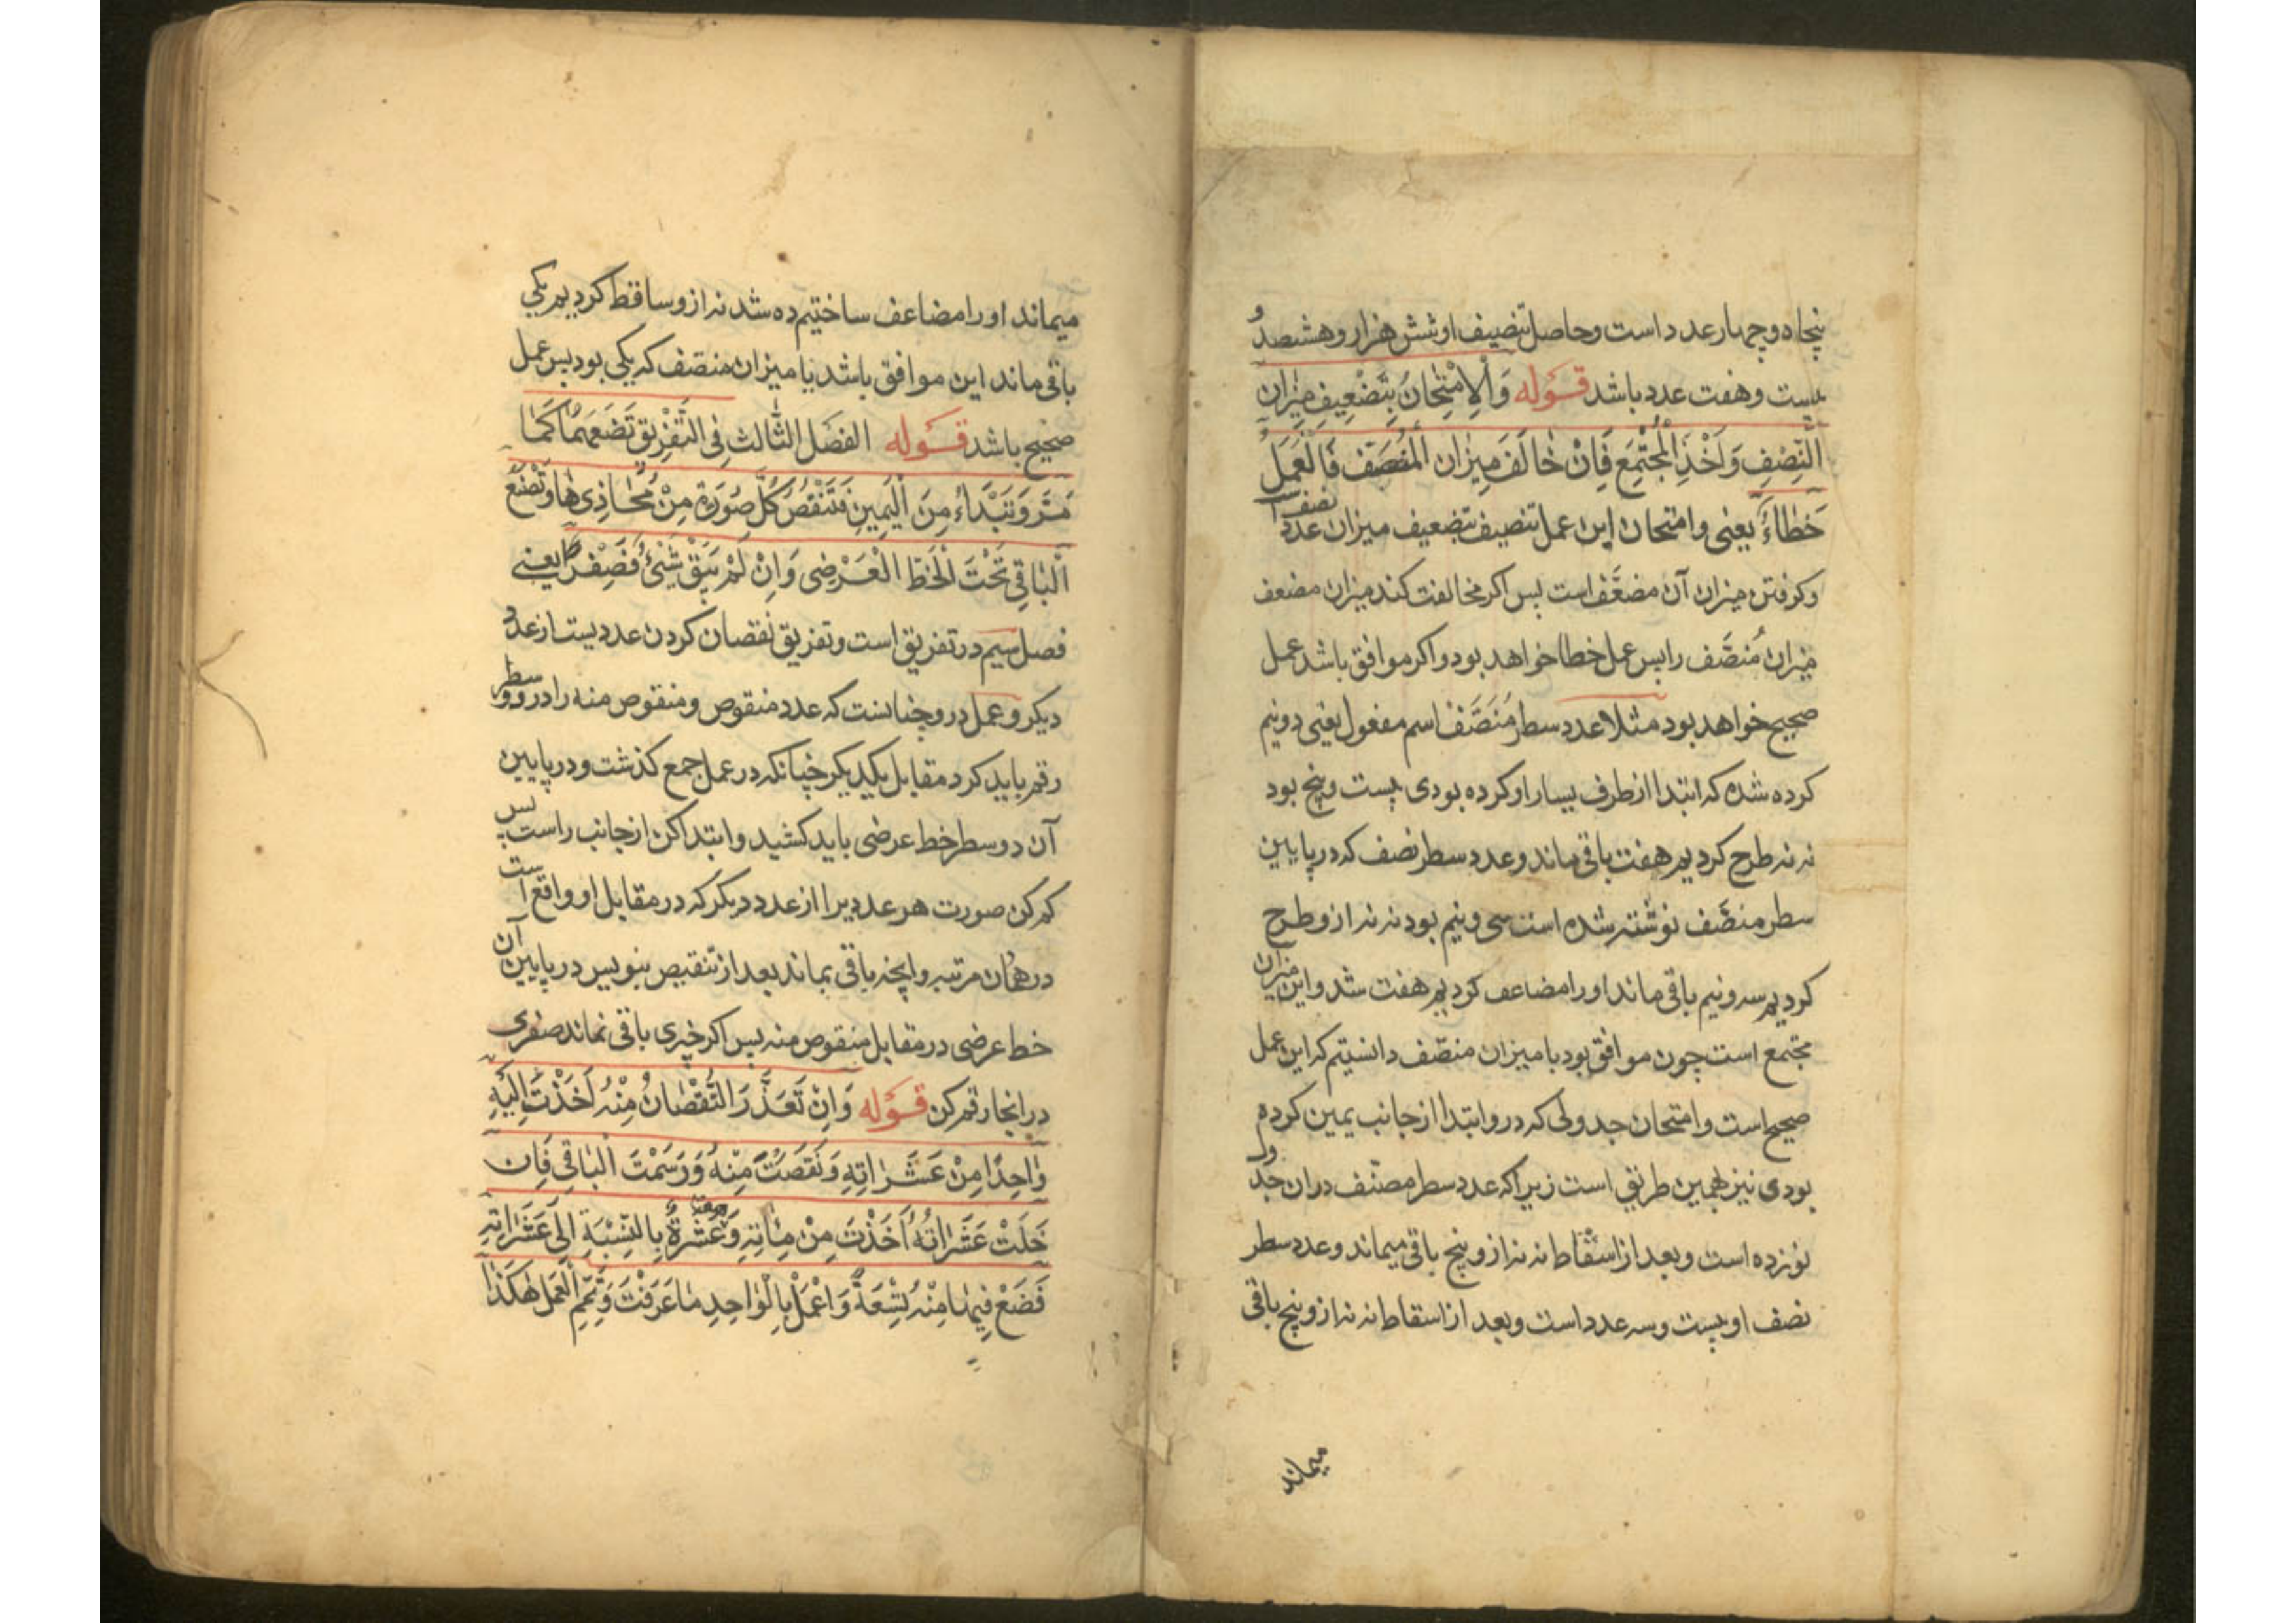 پنجاه و چهار عدد است و حاصل تنصیف او شش هزار و هشتصد و
بیست و هفت عدد باشد قوله وَالْاِمْتِحَانُ بِتَضْعِیفِ مِیزان
النِّصْفِ وَاَخْذِ الْمُجْتَمَعِ فَاِنْ خَالَفَ مِیزان الْمُنَصَّف فَالْعَمَلُ
خَطاءٌ یعنی و امتحان این عمل تنصیف بتضعیف میزان عدد نصف است
و کرفتن میزان آن مضعَّف است پس اکر مخالفت کند میزان مضعف
میزان مُنصَّف را پس عمل خطا خواهد بود و اکر موافق باشد عمل
صحیح خواهد بود مثلا عدد سطر مُنَصَّف اسم مفعول یعنی دو نیم
کرده شده که ابتدا از طرف یسار او کرده بودی بیست و پنج بود
نه نه طرح کردیم هفت باقی ماند و عدد سطر نصف که در پایین
سطر منصَّف نوشته شده است سی و نیم بود نه نه از و طرح
کردیم سه و نیم باقی ماند او را مضاعف کردیم هفت شد و این میزان
مجتمع است چون موافق بود با میزان منصّف دانستیم که این عمل
صحیح است و امتحان جدولی که در و ابتدا از جانب یمین کرده
بودی نیز بهمین طریق است زیرا که عدد سطر مصنّف در ان جدول
نوزده است و بعد از اسقاط نه نه از و پنج باقی میماند و عدد سطر
نصف او بیست و سه عدد است و بعد از اسقاط نه نه از و پنج باقی
میماند
میماند او را مضاعف ساختیم ده شد نه از و ساقط کردیم یکی
باقی ماند این موافق باشد با میزان منصّف که یکی بود پس عمل
صحیح باشد قوله الفصل الثّالث فی التَّفْرِیق تَضَعُهُمَا کَمَا
مَرَّ وَتَبْدَاءُ مِنَ الْیَمِینِ فَتَنْقُصُ کُلَّ صُورَةٍ مِنْ مُحَاذِیهَا وَتَضَعُ
الْبَاقِیَ تَحْتَ الْخَطِّ الْعَرْضِی وَاِنْ لَمْ یَبْقَ شَیْئٌ فَصِفْراً یعنی
فصل سیم در تفریق است و تفریق نقصان کردن عددیست از عدد
دیکر و عمل در و چنانست که عدد منقوص و منقوص منه را در دو سطر
رقم باید کرد مقابل یکدیکر چنانکه در عمل جمع کذشت و در پایین
آن دو سطر خط عرضی باید کشید و ابتدا کن از جانب راست پس
کم کن صورت هر عددیرا از عدد دیکر که در مقابل او واقع است
در همان مرتبه و آنچه باقی بماند بعد از تنقیص بنویس در پایین آن
خط عرضی در مقابل منقوص منه پس اکر چیزی باقی نماند صفری
در انجا رقم کن قوله وَاِنْ تَعَذَّرَ النُّقْصَانُ مِنْهُ اَخَذْتَ اِلَیْهِ
وٰاحِدًا مِنْ عَشَرَاتِهِ وَنَقَصْتَ مِنْهُ وَرَسَمْتَ الْبَاقِی فَاِن
خَلَتْ عَشَرَاتُهُ اَخَذْتَ مِنْ مِئَاتِهِ وَعَشَرَةٌ بِالنِّسْبَةِ اِلٰی عَشَرَاتِهِ
فَضَعْ فِیهٰا مِنْهُ تِسْعَةً وَاعْمَلْ بِالْوٰاحِدِ مٰا عَرَفْتَ وَتَمِّمِ الْعَمَلَ هٰکَذٰا